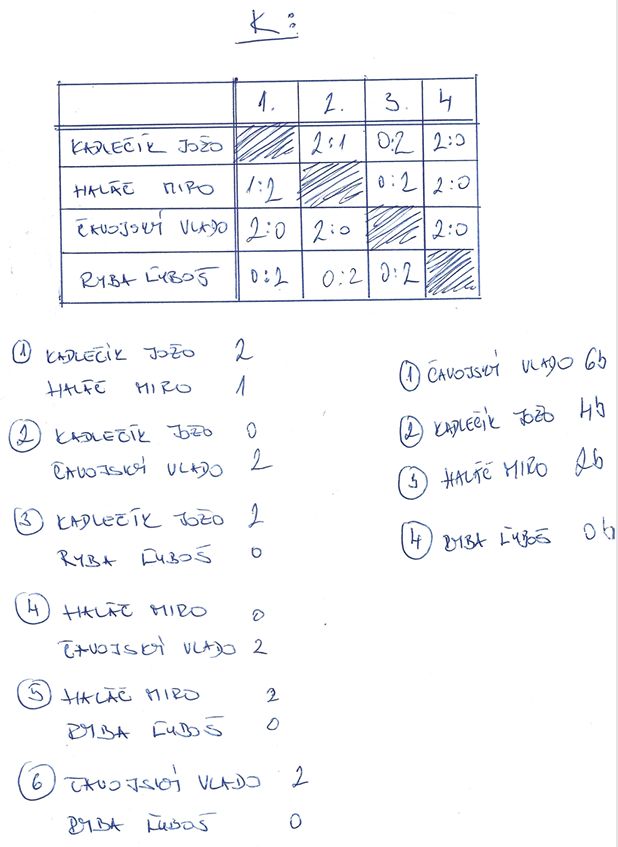 K:
1. 2. 3. 4
KADLEČÍK JOŽO 2:1 0:2 2:0
HALÁČ MIRO 1:2 0:2 2:0
ČAVOJSKÝ VLADO 2:0 2:0 2:0
RYBA ĽUBOŠ 0:2 0:2 0:2
1 KADLEČÍK JOŽO 2
HALÁČ MIRO 1
2 KADLEČÍK JOŽO 0
ČAVOJSKÝ VLADO 2
3 KADLEČÍK JOŽO 2
RYBA ĽUBOŠ 0
4 HALÁČ MIRO 0
ČAVOJSKÝ VLADO 2
5 HALÁČ MIRO 2
RYBA ĽUBOŠ 0
6 ČAVOJSKÝ VLADO 2
RYBA ĽUBOŠ 0
1 ČAVOJSKÝ VLADO 6b
2 KADLEČÍK JOŽO 4b
3 HALÁČ MIRO 2b
4 RYBA ĽUBOŠ 0b